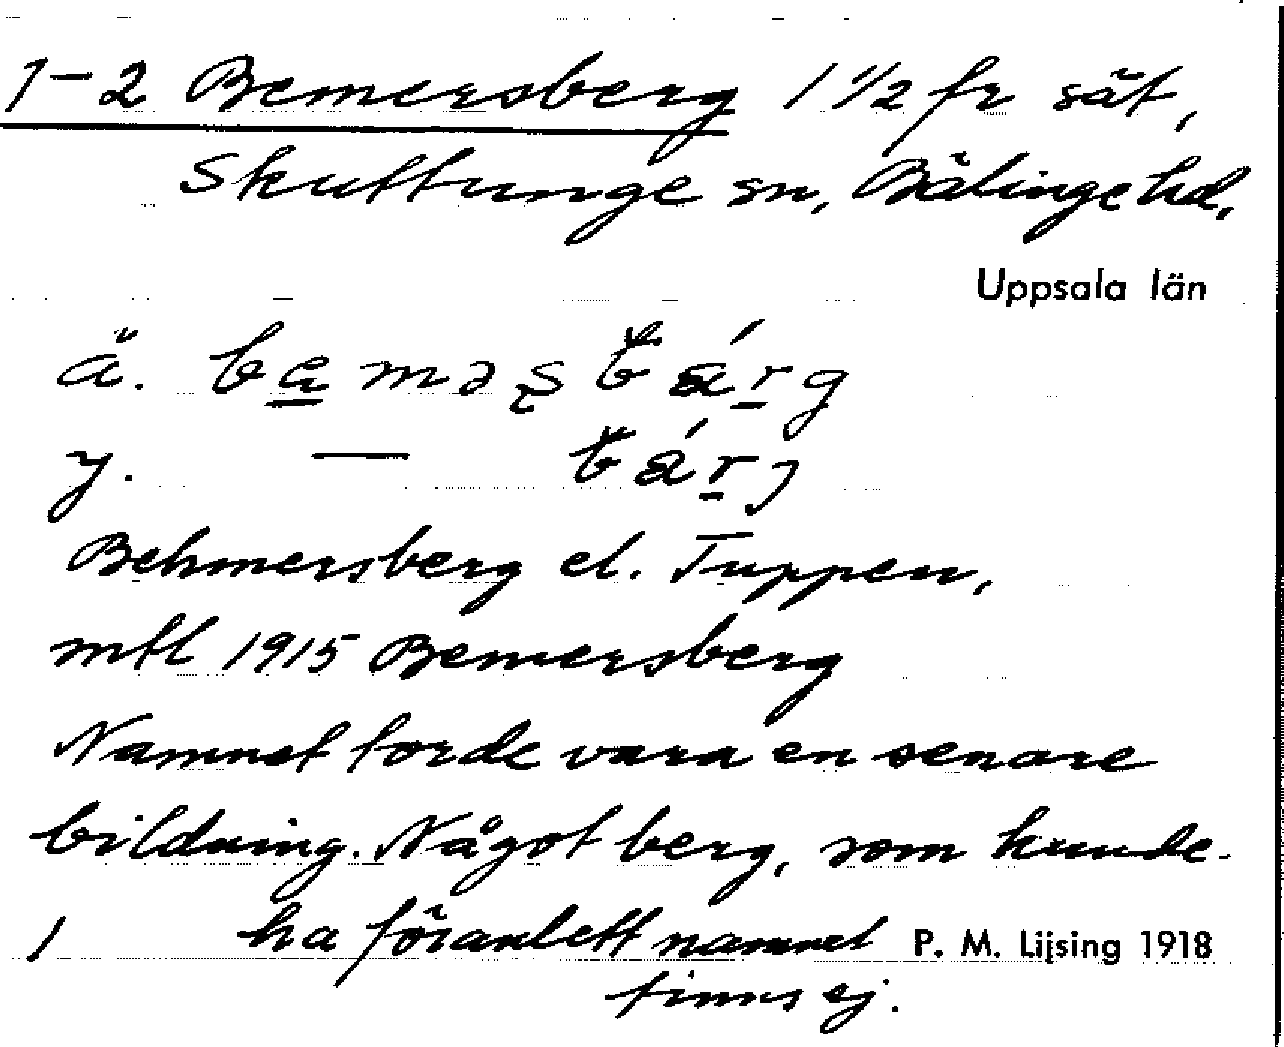 1-2 Bemersberg 1 1/2 fr sät,
Skuttunge sn, Bälinge hd,
Uppsala län
ä.
y. —
Behmersberg el. Tuppen,
mtl 1915 Bemersberg
Namnet torde vara en senare
bildning. Något berg, som kunde
1 ha föranlett namnet P. M. Lijsing 1918
finns ej.